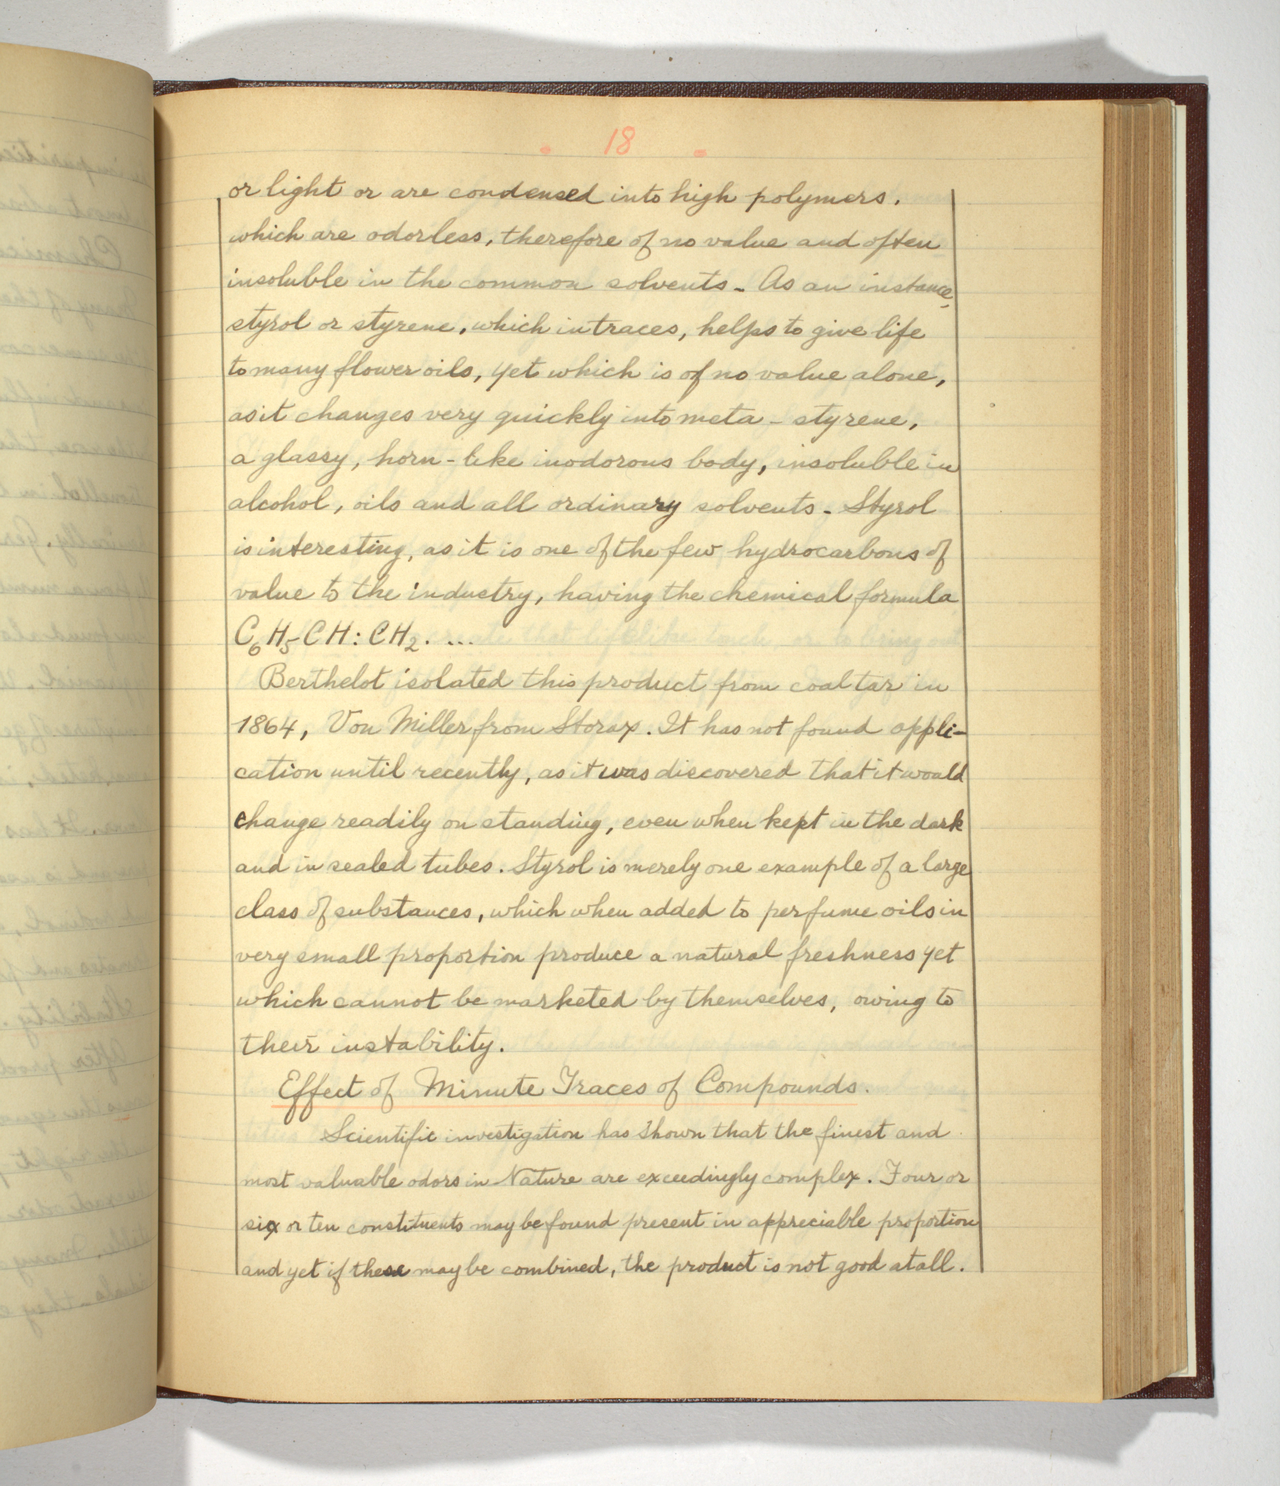 18
or light or are condensed into high polymers.
which are odorless, therefore of no value and often
insoluble in the common solvents - As an instance,
styrol or styrene, which in traces, helps to give life
to many flower oils, yet which is of no value alone,
as it changes very quickly into meta - styrene,
a glassy, horn-like inodorous body, insoluble in
alcohol, oils and all ordinary solvents - Styrol
is interesting, as it is one of the few hydrocarbons of
value to the industry, having the chemical formula
C6H5-CH:CH2. ...
Berthelot isolated this product from coal tar in
1864, Von Miller from Storax. It has not found appli-
cation until recently, as it was discovered that it would
change readily on standing, even when kept in the dark
and in sealed tubes. Styrol is merely one example of a large
class of substances, which when added to perfume oils in
very small proportion produce a natural freshness yet
which cannot be marketed by themselves, owing to
their instability.
Effect of Minute Traces of Compounds.
Scientific investigation has shown that the finest and
most valuable odors in Nature are exceedingly complex. Four or
six or ten constituents may be found present in appreciable proportion
and yet if these may be combined, the product is not good at all.